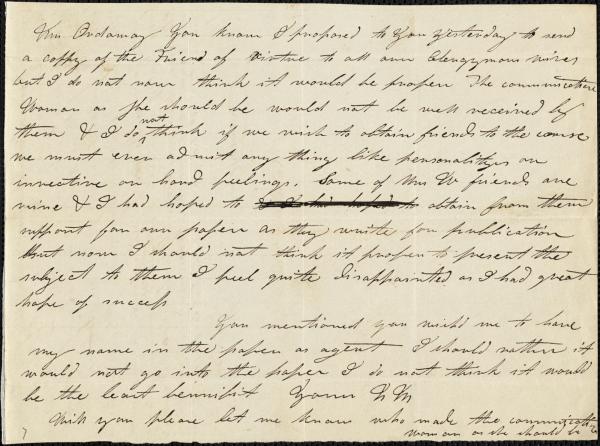 Mrs Ordaway You know I proposed to You yesterday to send
a copy of the Friend of Virtue to all our Clergymens wives
but I do not now think it would be proper The communication
Woman as She should be would not be well received by
them & I do not think if we wish to obtain friends to the cause
we must ever admit any thing like personalitys or
invective or hard feelings. Some of Mrs W friends are
mine & I had hoped to obtain from them
support for our paper as they write for publication
But now I should not think it proper to present the
subject to them I feel quite disappointed as I had great
hope of success
You mentioned you wish'd me to have
my name in the paper as agent I should rather it
would not go into the paper I do not think it would
be the least bennifit Yours
Will you please let me know who made the communication
woman as she should be